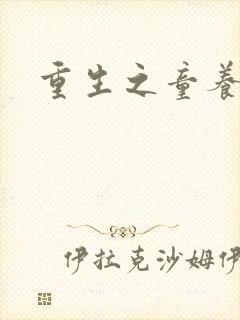 重生之童养
伊拉克沙姆伊